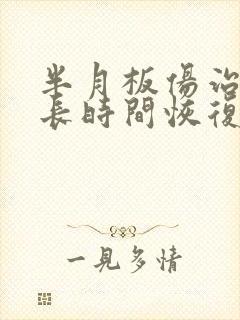 半月板傷治
長時間恢復
一見多情